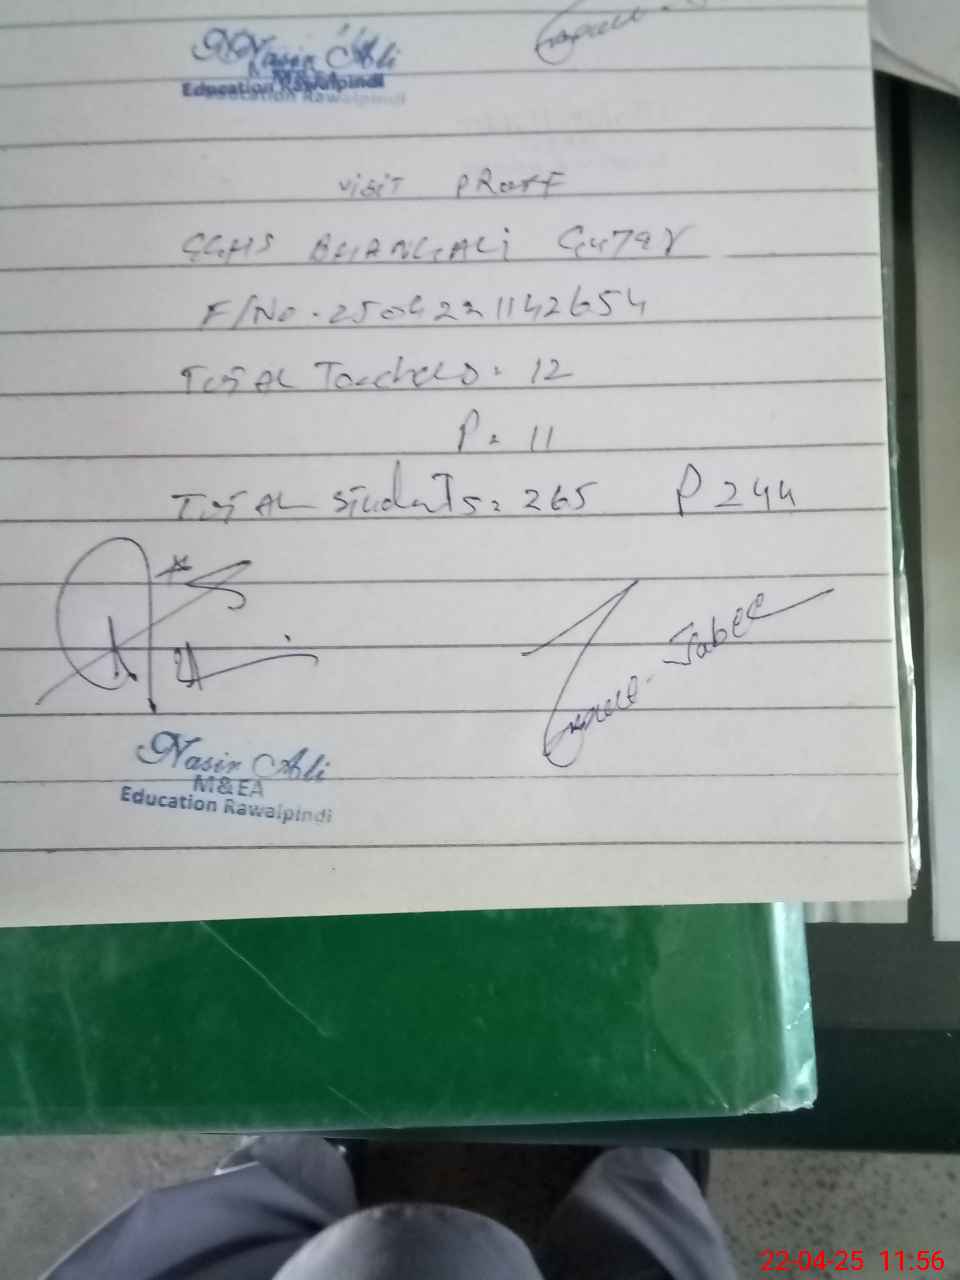 Nasir Ali
M&EA
Education Rawalpindi
VISIT PROFF
GGHS BHANGALI GUJAR
F/No. 250422 1142654
TOTAL Teachers = 12
P = 11
TOTAL Students = 265 P 244
Jabee
Nasir Ali
M&EA
Education Rawalpindi
22-04-25 11:56